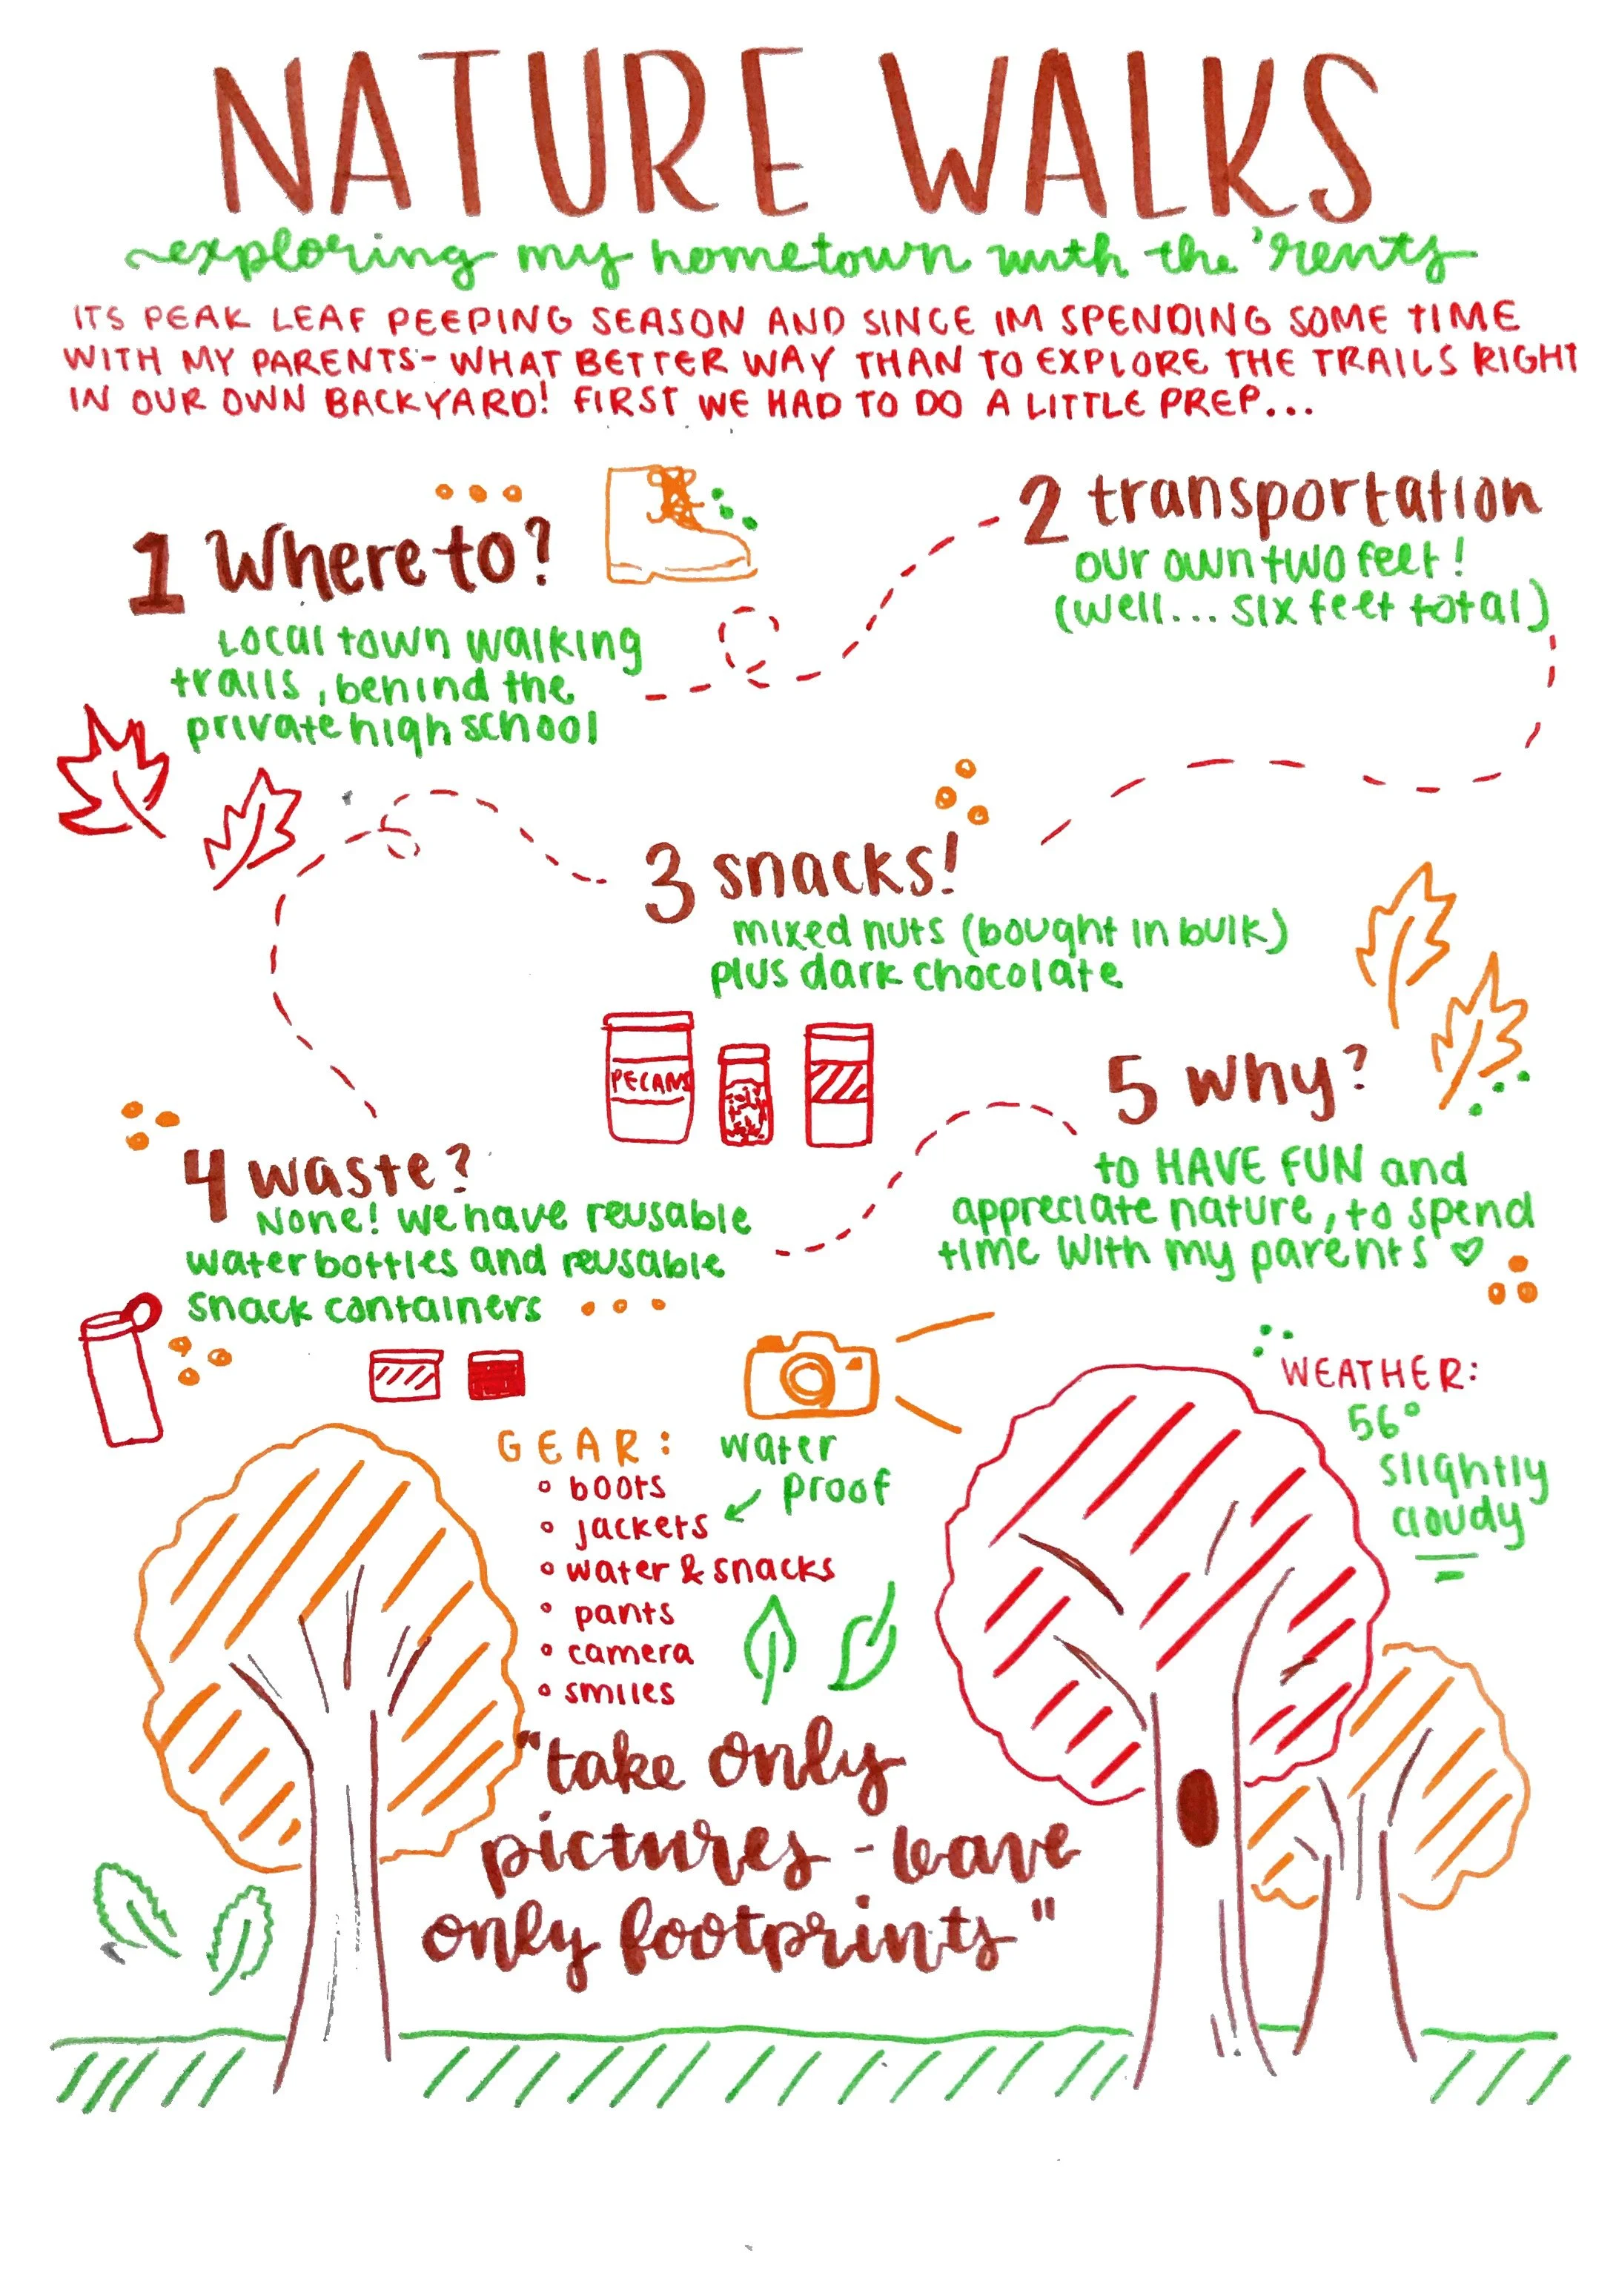 NATURE WALKS
exploring my hometown with the 'rents
ITS PEAK LEAF PEEPING SEASON AND SINCE IM SPENDING SOME TIME
WITH MY PARENTS - WHAT BETTER WAY THAN TO EXPLORE THE TRAILS RIGHT
IN OUR OWN BACKYARD! FIRST WE HAD TO DO A LITTLE PREP...
1 Where to?
Local town walking
trails, behind the
private high school
2 transportation
our own two feet!
(well... six feet total)
3 snacks!
mixed nuts (bought in bulk)
plus dark chocolate
PECANS
4 waste?
None! We have reusable
water bottles and reusable
snack containers
5 why?
to HAVE FUN and
appreciate nature, to spend
time with my parents ♡
GEAR:
• boots
• jackets
• water & snacks
• pants
• camera
• smiles
water
proof
WEATHER:
56°
slightly
cloudy
"take only
pictures - leave
only footprints"